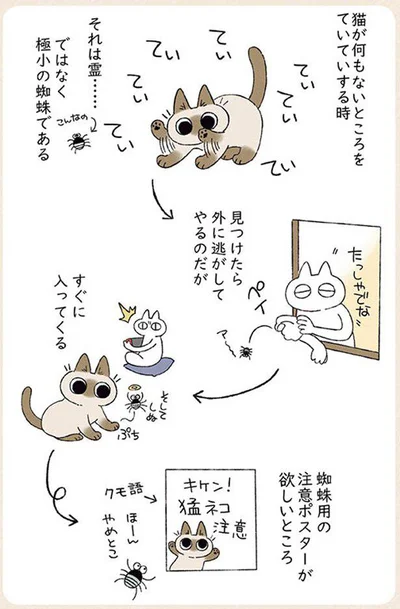 猫が何もないところを
ていていする時
てい
てい
てい
てい
てい
てい
てい
それは霊……
ではなく
極小の蜘蛛である
こんなの
見つけたら
外に逃がして
やるのだが
たっしゃでな
ペイ
アー
すぐに
入ってくる
そして
しぬ
ぷち
蜘蛛用の
注意ポスターが
欲しいところ
キケン!
猛ネコ
注意
クモ語
ほーん
やめとこ